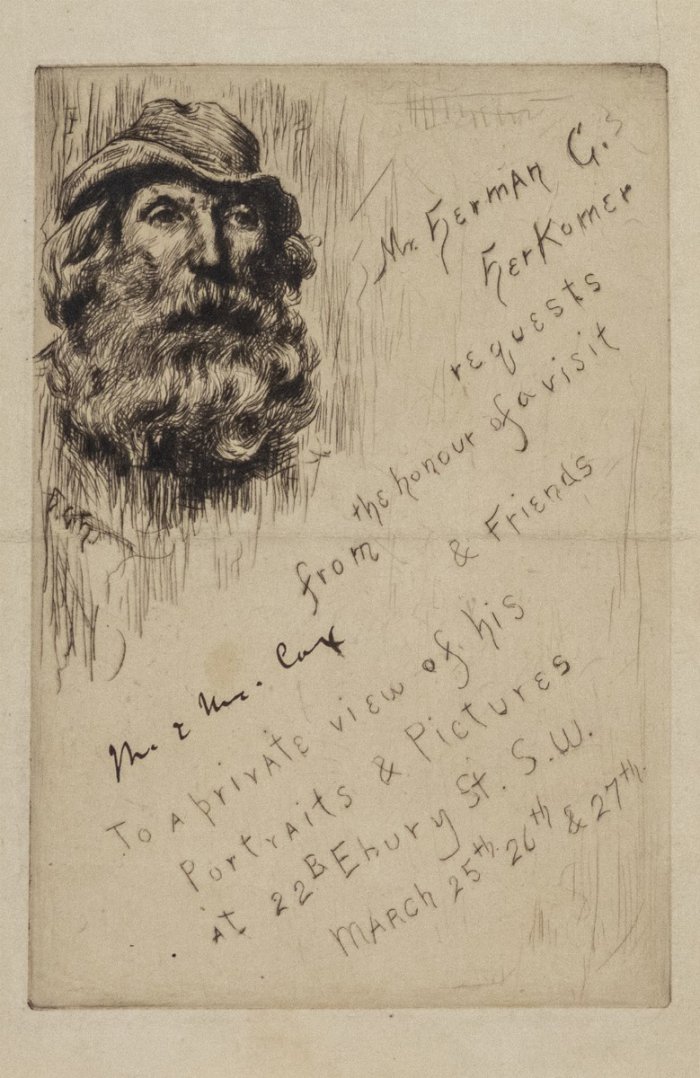 Mr. Herman G.
Herkomer
requests
the honour of a visit
from
Mr. & Mrs. Cox
& Friends
To a private view of his
Portraits & Pictures
at 22B Ebury St. S.W.
March 25th 26th & 27th.